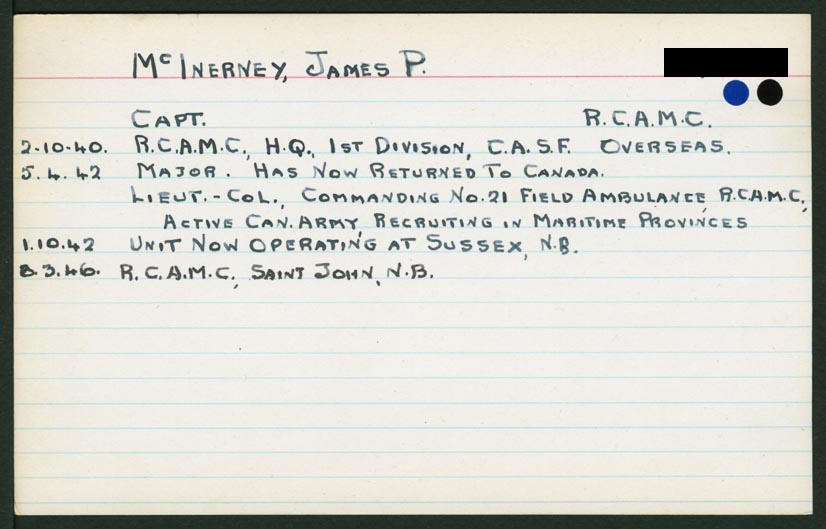 McINERNEY, JAMES P.
CAPT. R.C.A.M.C.
2.10.40. R.C.A.M.C., H.Q., 1ST DIVISION, C.A.S.F. OVERSEAS.
5.4.42 MAJOR. HAS NOW RETURNED TO CANADA.
LIEUT.-COL., COMMANDING NO.21 FIELD AMBULANCE, R.C.A.M.C.,
ACTIVE CAN. ARMY, RECRUITING IN MARITIME PROVINCES
1.10.42 UNIT NOW OPERATING AT SUSSEX, N.B.
8.3.46. R.C.A.M.C., SAINT JOHN, N.B.